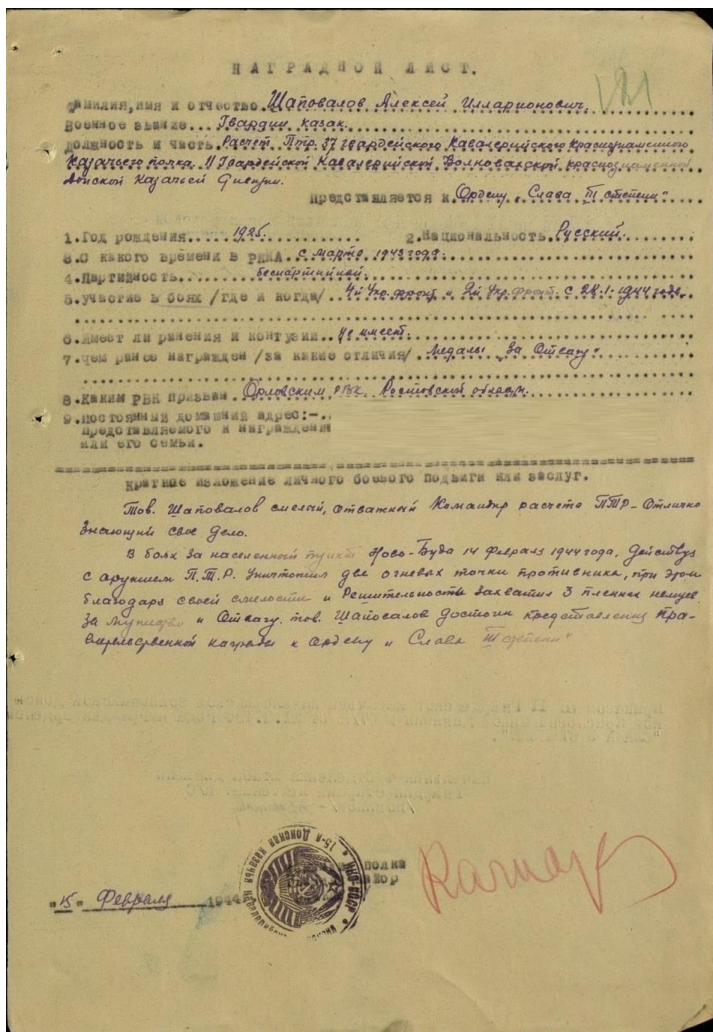 НАГРАДНОЙ ЛИСТ.
Фамилия,имя и отчество. Шаповалов Алексей Илларионович.
Военное звание... Гвардии казак.
Должность и часть. Расчет Птр. 37 гвардейского Кавалерийского Краснознаменного
Казачьего полка 11 Гвардейской Кавалерийской Волновахской краснознаменной
донской Казачьей Дивизии.
Представляется к Ордену „Слава III степени"
1.Год рождения.... 1925. 2.Национальность Русский.
3.С какого времени в РККА. с Марта 1943 года.
4.Партийность беспартийный.
5.Участие в боях /где и когда/.. 4й Укр.фронт и 2й Укр.фронт. с 28.1-1944 года.
6.Имеет ли ранения и контузии.. Не имеет.
7.Чем ранее награжден /за какие отличия/. Медалью „За Отвагу"
8.Каким РВК призван Орловским РВК Ростовской области.
9.Постоянный домашний адрес:-..
представляемого к награждению
или его семьи.
Краткое изложение личного боевого подвига или заслуг.
Тов. Шаповалов смелый, отважный Командир расчета ПТР-Отлично
Знающий свое дело.
В боях за населенный пункт Ново-Буда 14 февраля 1944 года, Действуя
с оружием П.Т.Р. Уничтожил две огневых точки противника, при этом
благодаря своей смелости и Решительности Захватил 3 пленных немцев
За Мужество и Отвагу. тов. Шаповалов Достоин представления Пра-
вительственной награды к Ордену и Слава III степени"
полка
15 Февраля 1944
НКО-СССР
15-я Донская казачья